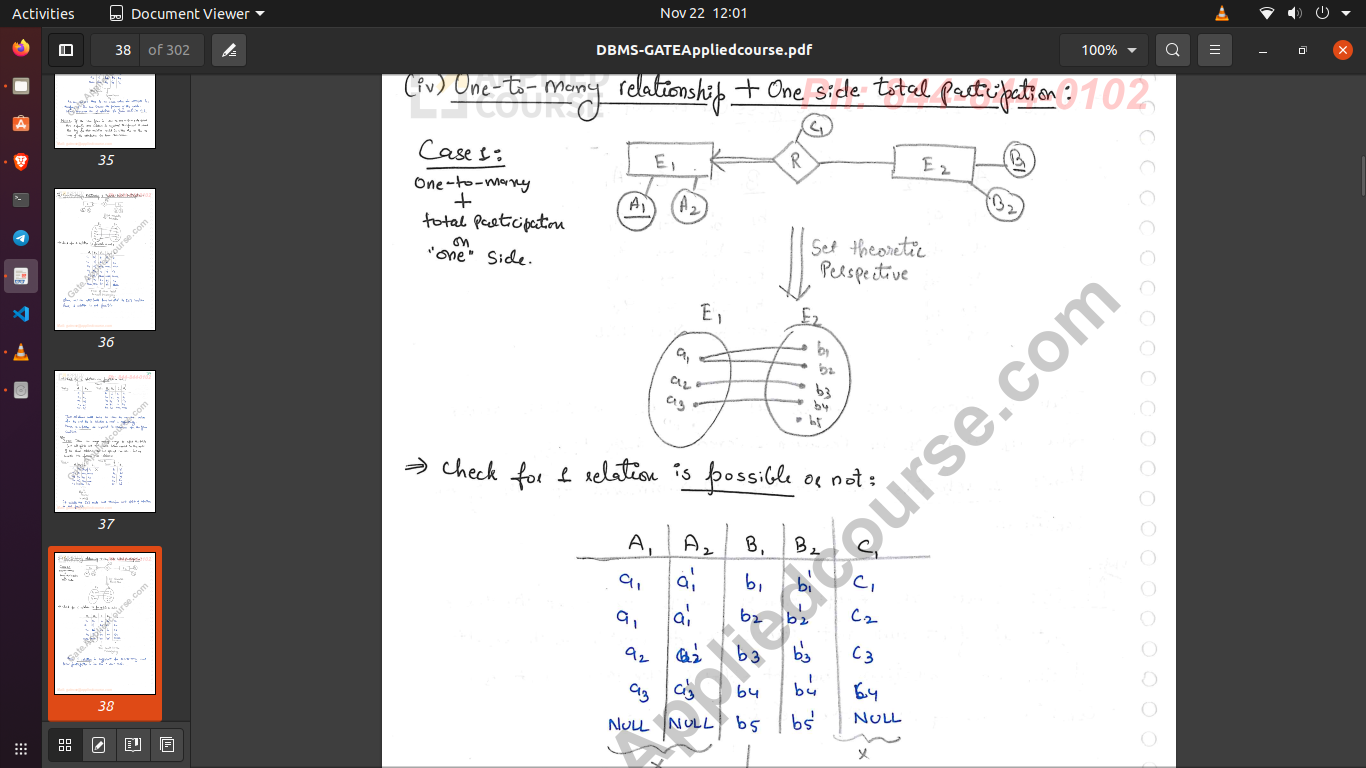 Activities
Document Viewer
Nov 22 12:01
38
of 302
DBMS-GATEAppliedcourse.pdf
100%
35
36
37
38
APPLIED
COURSE
Ph: 844-844-0102
(iv) One-to-many relationship + One side total participation:
Case 1:
One-to-many
+
total participation
on
"one" side.
C1
E1
R
E2
B1
A1
A2
B2
Set theoretic
Perspective
E1
E2
a1
a2
a3
b1
b2
b3
b4
b5
⇒ Check for 1 relation is possible or not:
A1 A2 B1 B2 C1
a1 a1' b1 b1' C1
a1 a1' b2 b2' C2
a2 a2' b3 b3' C3
a3 a3' b4 b4' C4
NULL NULL b5 b5' NULL
x
x
Appliedcourse.com